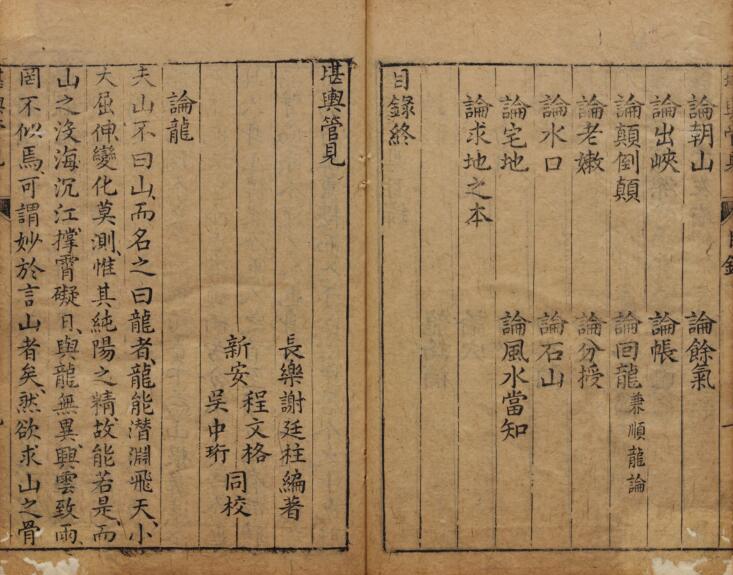 論朝山 論餘氣
論出峽 論帳
論顛倒顛 論回龍兼順龍論
論老嫩 論分授
論水口 論石山
論宅地 論風水當知
論求地之本
目錄終
堪輿管見
長樂謝廷柱編著
新安程文格吳中珩同校
論龍
夫山不曰山、而名之曰龍者、龍能潛淵飛天、小
大屈伸、變化莫測、惟其純陽之精、故能若是、而
山之沒海沉江、撑霄礙日、與龍無異、興雲致雨、
罔不似焉、可謂妙於言山者矣、然欲求山之骨